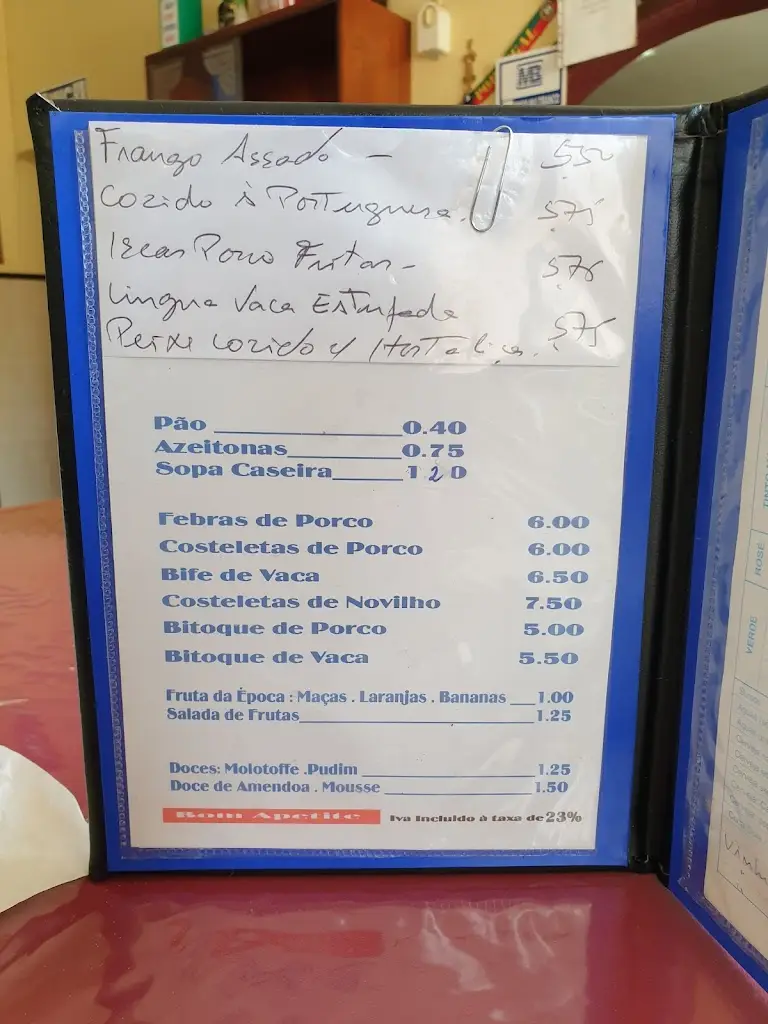 MB
Frango Assado — 5,50
Cozido à Portuguesa. 5,75
Iscas Porco Fritas - 5,75
Lingua Vaca Estufada
Peixe cozido c/ Hortaliças. 5,75
Pão 0.40
Azeitonas 0.75
Sopa Caseira 1 2 0
Febras de Porco 6.00
Costeletas de Porco 6.00
Bife de Vaca 6.50
Costeletas de Novilho 7.50
Bitoque de Porco 5.00
Bitoque de Vaca 5.50
Fruta da Época : Maças . Laranjas . Bananas 1.00
Salada de Frutas 1.25
Doces: Molotoffe .Pudim 1.25
Doce de Amendoa . Mousse 1.50
Bom Apetite Iva Incluido à taxa de 23%
ROSÉ
VERDE